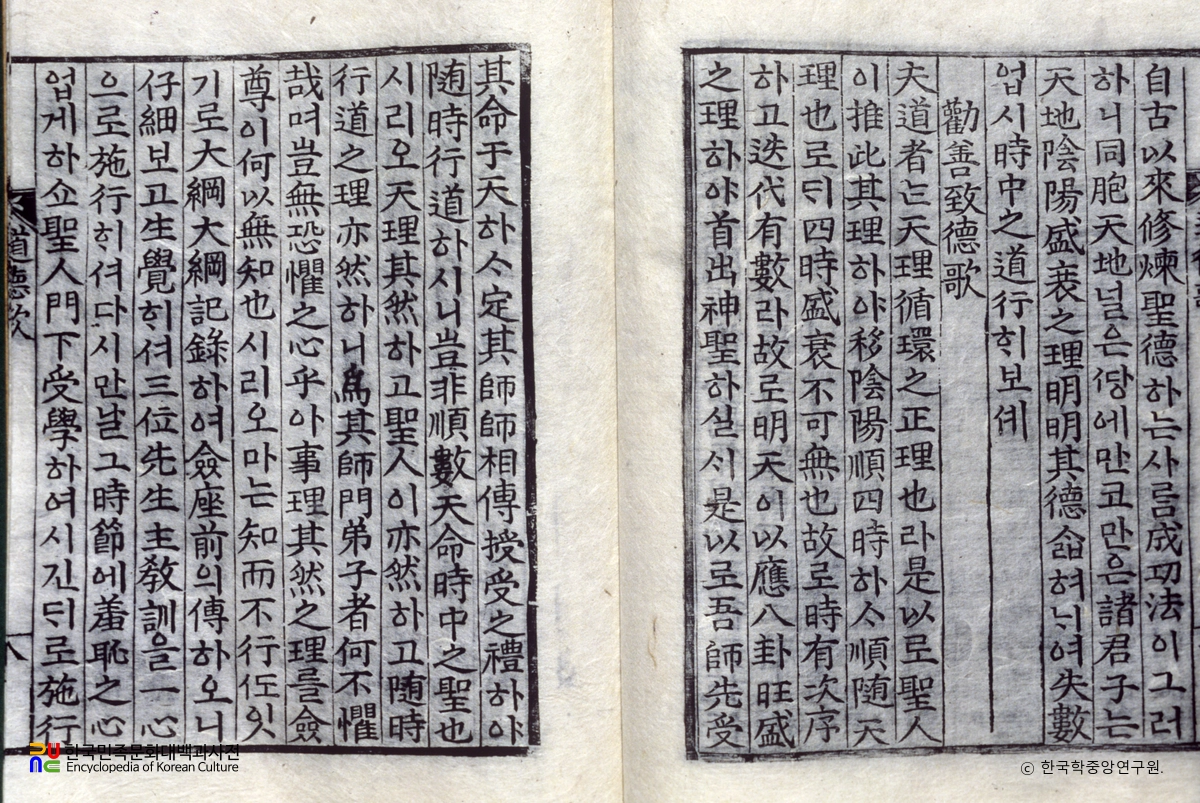 自古以來修煉聖德하는사름成功法이그러
하니同胞天地널은땅에만코만은諸君子는
天地陰陽盛衰之理明明其德合허닉여失數
업시時中之道行히보세
勸善致德歌
夫道者는天理循環之正理也라是以로聖人
이推此其理하야移陰陽順四時하人順隨天
理也로되四時盛衰不可無也故로時有次序
하고迭代有數라故로明天이以應八卦旺盛
之理하야首出神聖하실시是以로吾師先受
其命于天하人定其師師相傳授受之禮하야
随時行道하시니豈非順數天命時中之聖也
시리오天理其然하고聖人이亦然하고随時
行道之理亦然하니爲其師門弟子者何不懼
哉며豈無恐懼之心乎아事理其然之理를僉
尊이何以無知也시리오마는知而不行도잇
기로大綱大綱記錄하여僉座前의傳하오니
仔細보고生覺히셔三位先生主教訓을一心
으로施行히셔다시만날그時節에羞恥之心
업게하쇼聖人門下受學하여시긴되로施行
道德歌
八
한국민족문화대백과사전
Encyclopedia of Korean Culture
ⓒ 한국학중앙연구원.